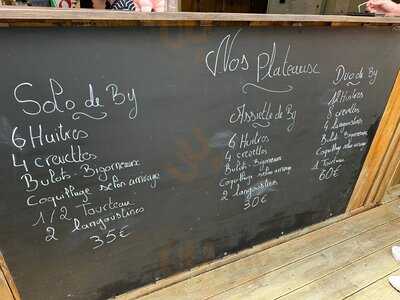 Nos plateaux
Solo de By
6 Huitres
4 crevettes
Bulots - Bigorneaux
Coquillage selon arrivage
1/2 Tourteau
2 langoustines
35€
Assiette de By
6 Huitres
4 crevettes
Bulots - Bigorneaux
Coquillage selon arrivage
2 langoustines
30€
Duo de By
12 Huitres
8 crevettes
4 langoustines
Bulots - Bigorneaux
Coquillage selon arrivage
1 Tourteau
60€